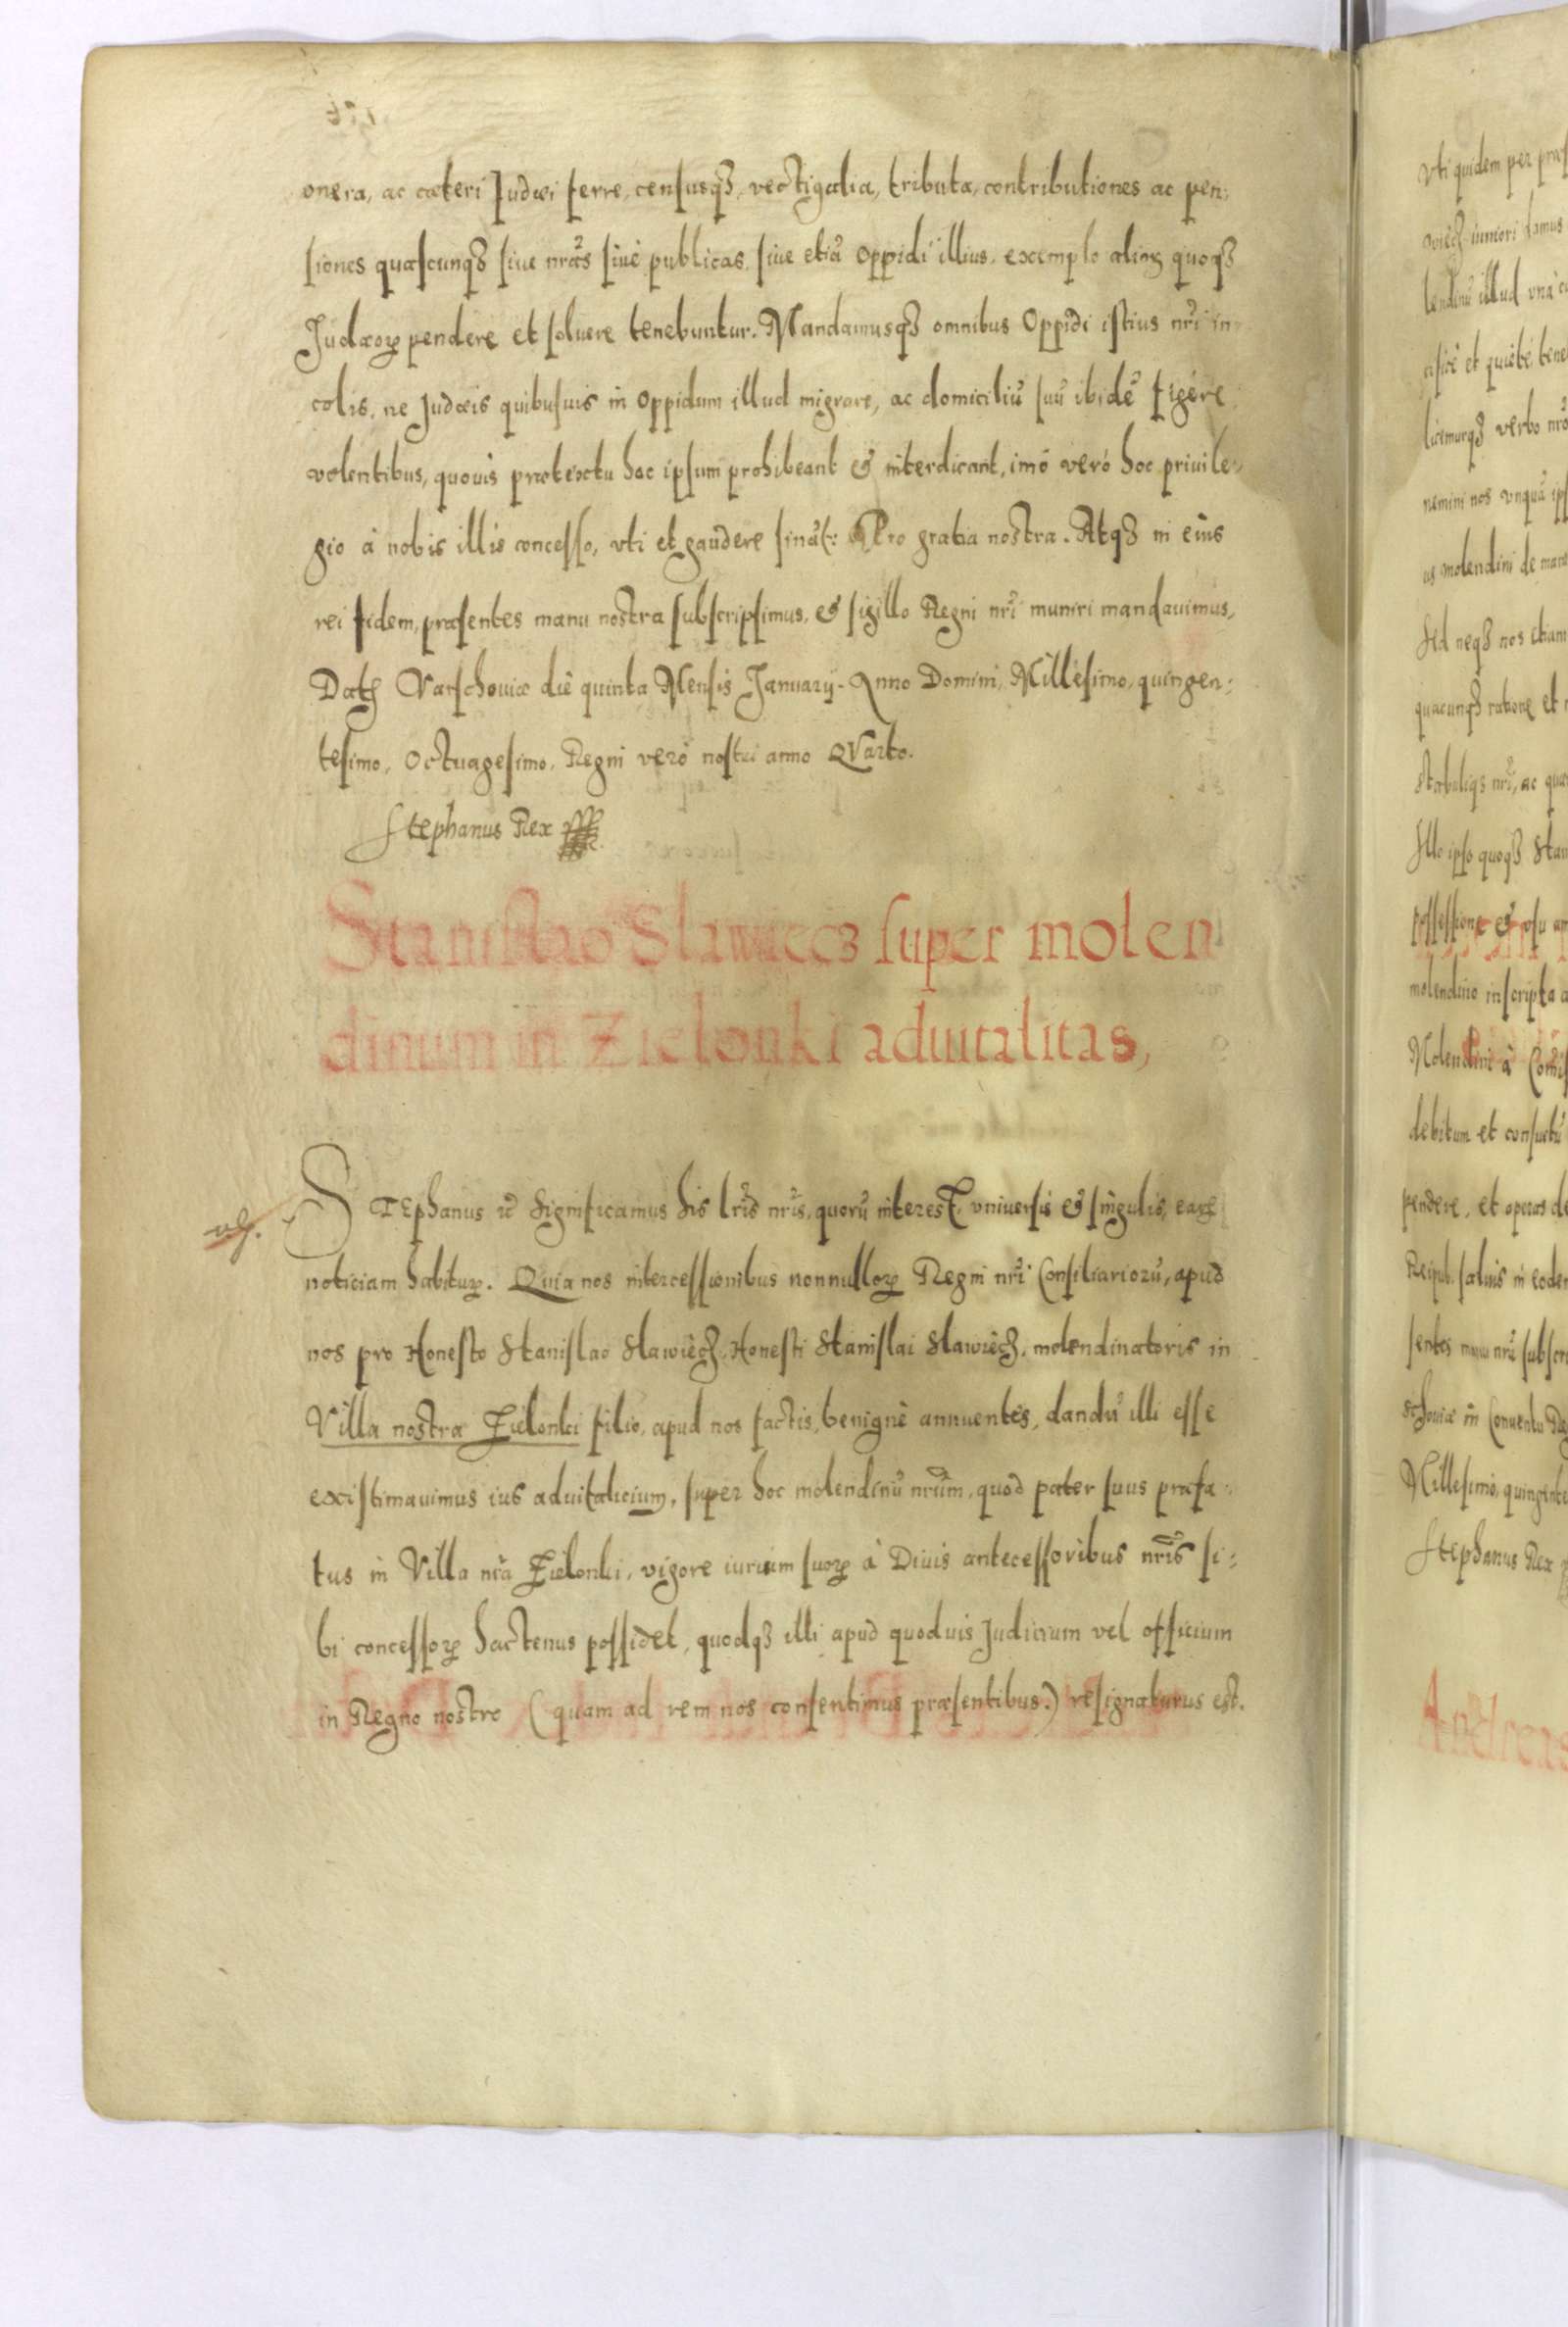 onera, ac cæteri Judæi ferre, censusqȝ, vectigalia, tributa, contributiones ac pen:
siones quascunqȝ siue nr̃as siuè publicas, siue etiã oppidi illius, exemplo alioꝝ quoqȝ
Judæoꝝ pendere et soluere tenebuntur. Mandamusqȝ omnibus Oppidi istius nr̃i in
colis, ne Judæis quibusuis in oppidum illud migrare, ac domiciliũ suũ ibidẽ figere
volentibus, quouis prætextu hoc ipsum prohibeant & interdicant, imò verò hoc priuile
gio à nobis illis concesso, vti et gaudere sinãt: Pro gratia nostra. Atqȝ in eius
rei fidem, præsentes manu nostra subscripsimus, & sigillo Regni nr̃i muniri mandauimus,
Datꝝ Varschouiæ diè quinta Mensis Januarij. Anno Domini, Millesimo, quingen:
tesimo, Octuagesimo, Regni verò nostri anno QVarto.
Stephanus Rex
Stanislao Slawiecȝ super molen
dinum in Zielonki aduitalitas,
STEphanus ꝛc̃ Significamus his lr̃is nr̃is, quorũ interest, vniuersis & singulis, eaꝝ
noticiam habituꝝ. Quia nos intercessionibus nonnulloꝝ Regni nr̃i Consiliariorũ, apud
nos pro Honesto Stanislao Slawiècȝ, Honesti Stanislai Slawiècȝ, molendinatoris in
Villa nostra Zielonki filio, apud nos factis, benignè annuentes, dandũ illi esse
existimauimus ius aduitalicium, super hoc molendinũ nr̃um, quod pater suus præfa:
tus in Villa nr̃a Zielonki, vigore iurium suoꝝ à Diuis antecessoribus nr̃is si:
bi concessoꝝ hactenus possidet, quodqȝ illi apud quoduis Judicium vel officium
in Regno nostro (quam ad rem nos consentimus præsentibus.) resignaturus est.
vti quidem per
lendinũ illud vnà
nemini nos vnquã
us molendini de
Sed neqȝ nos etiam
quacunqȝ ratione et
possessione & vsu
molendino inscripta
Molendini à
debitum et
pendere, et operas
Stephanus Rex
Andreas